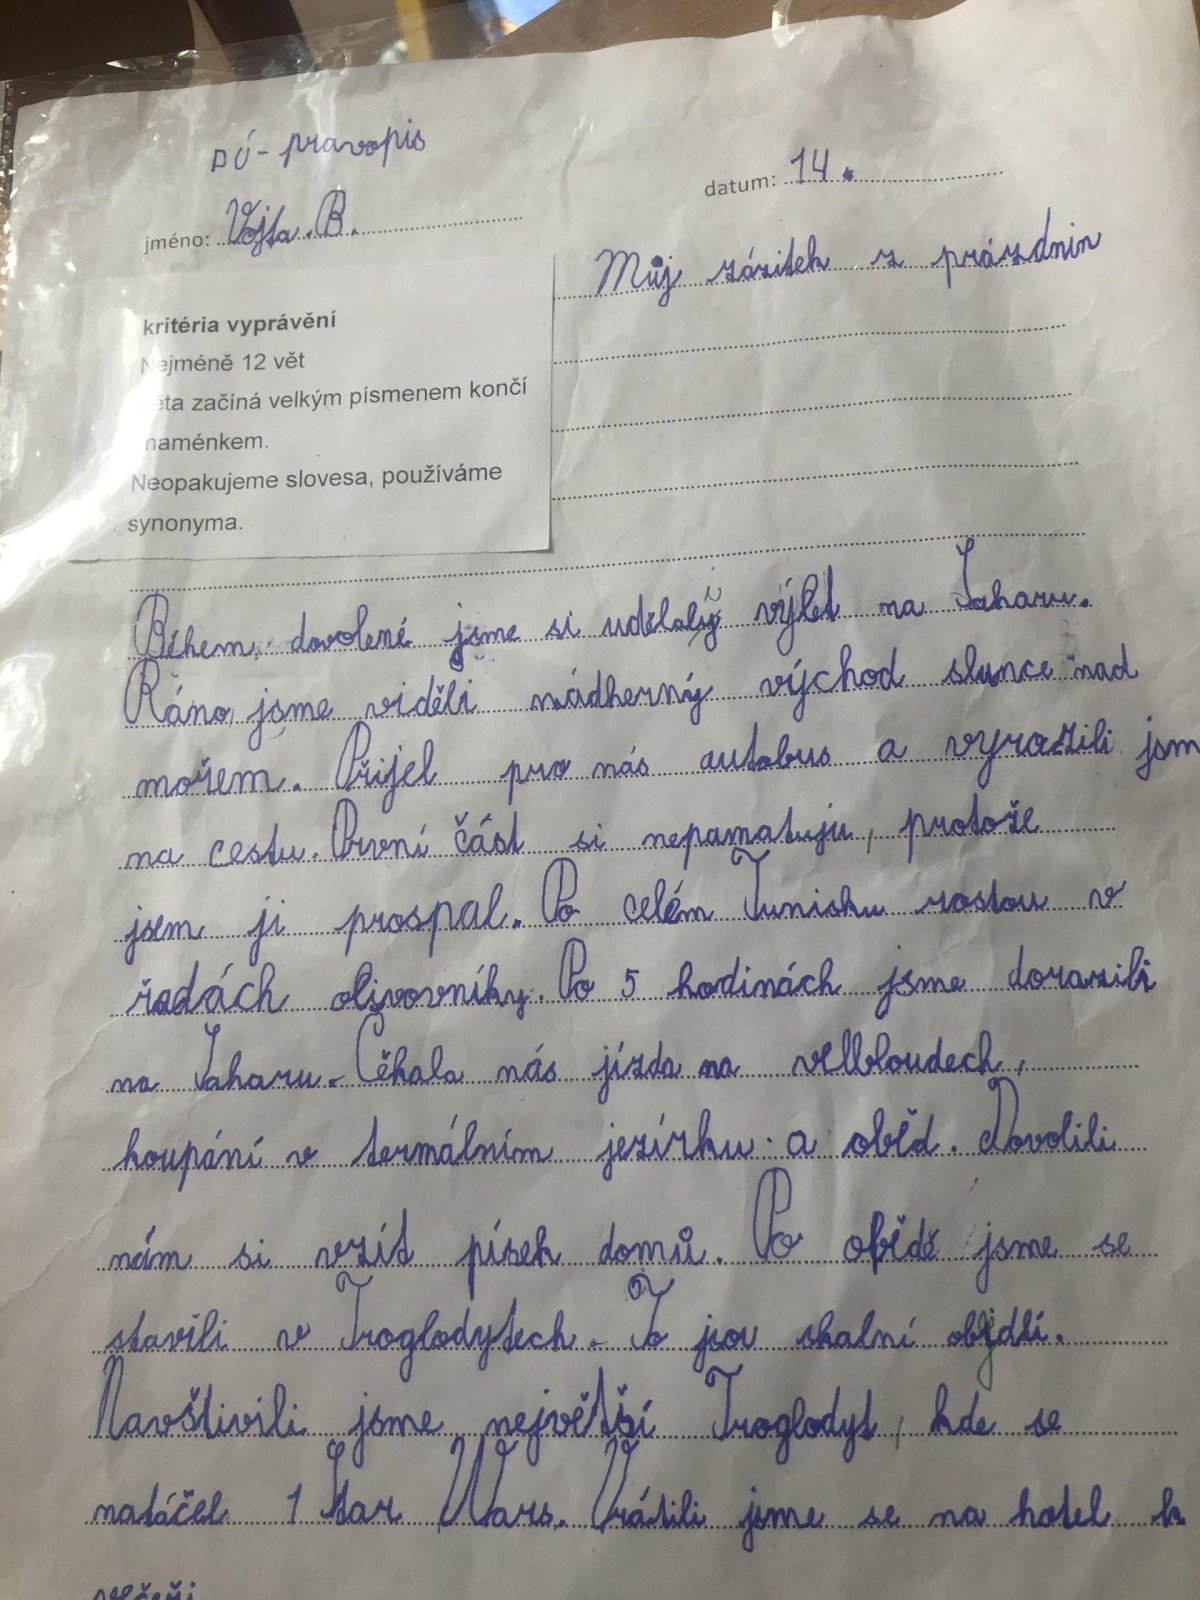 DÚ - pravopis
datum: 14.
jméno: Vojta. B.
Můj zázitek z prázdnin
kritéria vyprávění
Nejméně 12 vět
ěta začíná velkým písmenem končí
naménkem.
Neopakujeme slovesa, používáme
synonyma.
Během dovolené jsme si udělaly i výlet na Saharu.
Ráno jsme viděli nádherný východ slunce nad
mořem. Přijel pro nás autobus a vyrazili jsm
na cestu. První část si nepamatuju, protože
jsem ji prospal. Po celém Tunisku rostou v
řadách olivovníky. Po 5 hodinách jsme dorazili
na Saharu. Čěkala nás jízda na velbloudech,
koupání v termálním jezírku a oběd. Dovolili
nám si vzít písek domů. Po obědě jsme se
stavili v Troglodytech. To jsou skalní objdlí.
Navštívili jsme největší Troglodyt, kde se
natáčel 1 Star Wars. Vrátili jsme se na hotel k
večeři.